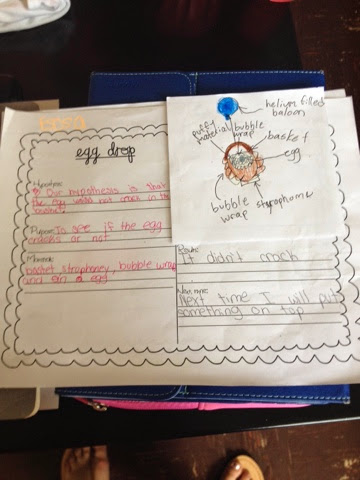 egg drop
Hypothesis:
Our hypothesis is that
the egg would not crack in the
Purpose: To see if the egg
cracks or not
Materials:
basket strophoney, bubble wrap
and an egg
helium filled
baloon
puffy
material
bubble
wrap
basket
egg
bubble
wrap
strophome
Results:
It didn't crack
Next time:
Next time I will put
something on top